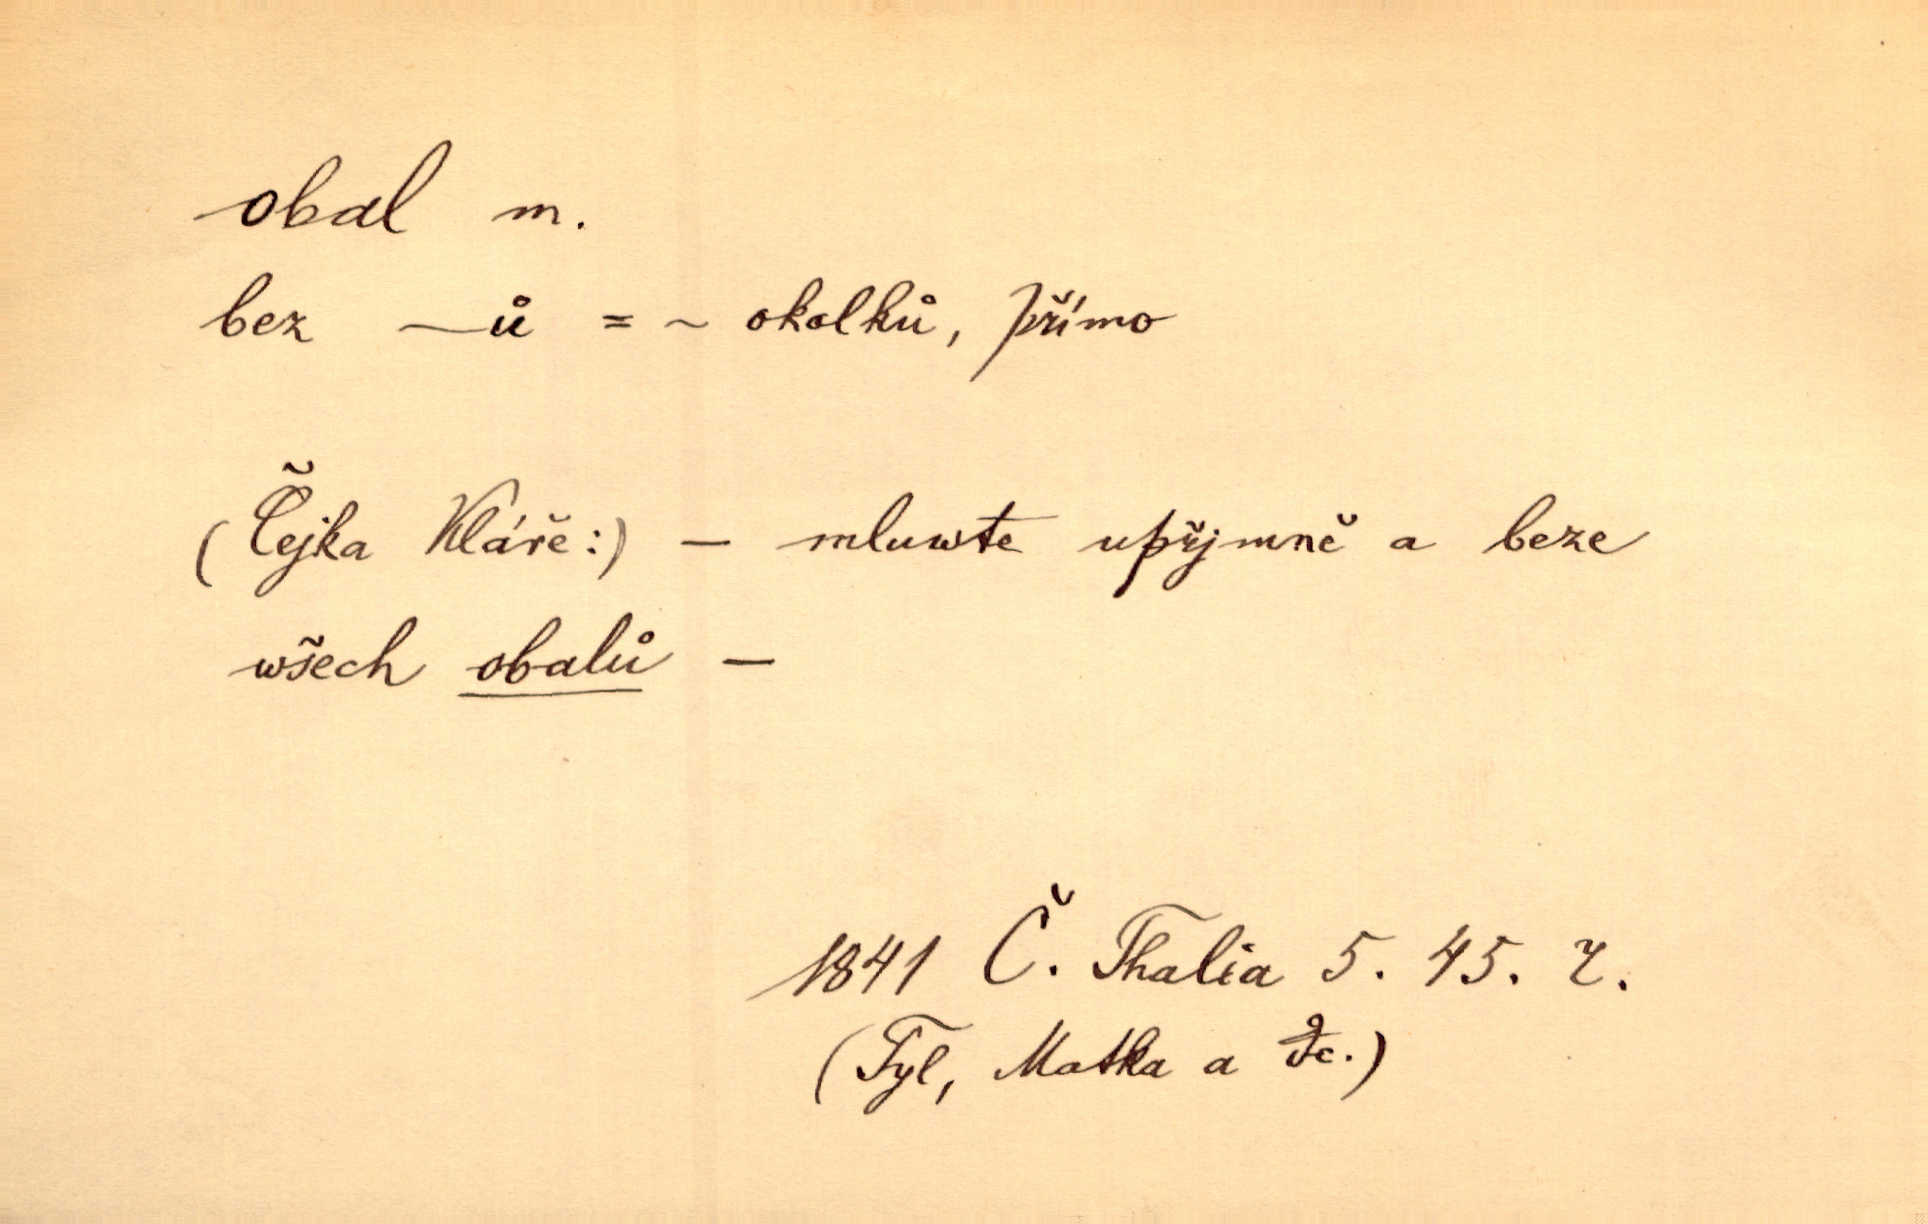 obal m.
bez —ů = ~ okolků, přímo
(Čejka Kláře:) — mluwte upřjmně a beze
wšech obalů —
1841 Č. Thalia 5. 45. r.
(Tyl, Matka a dc.)